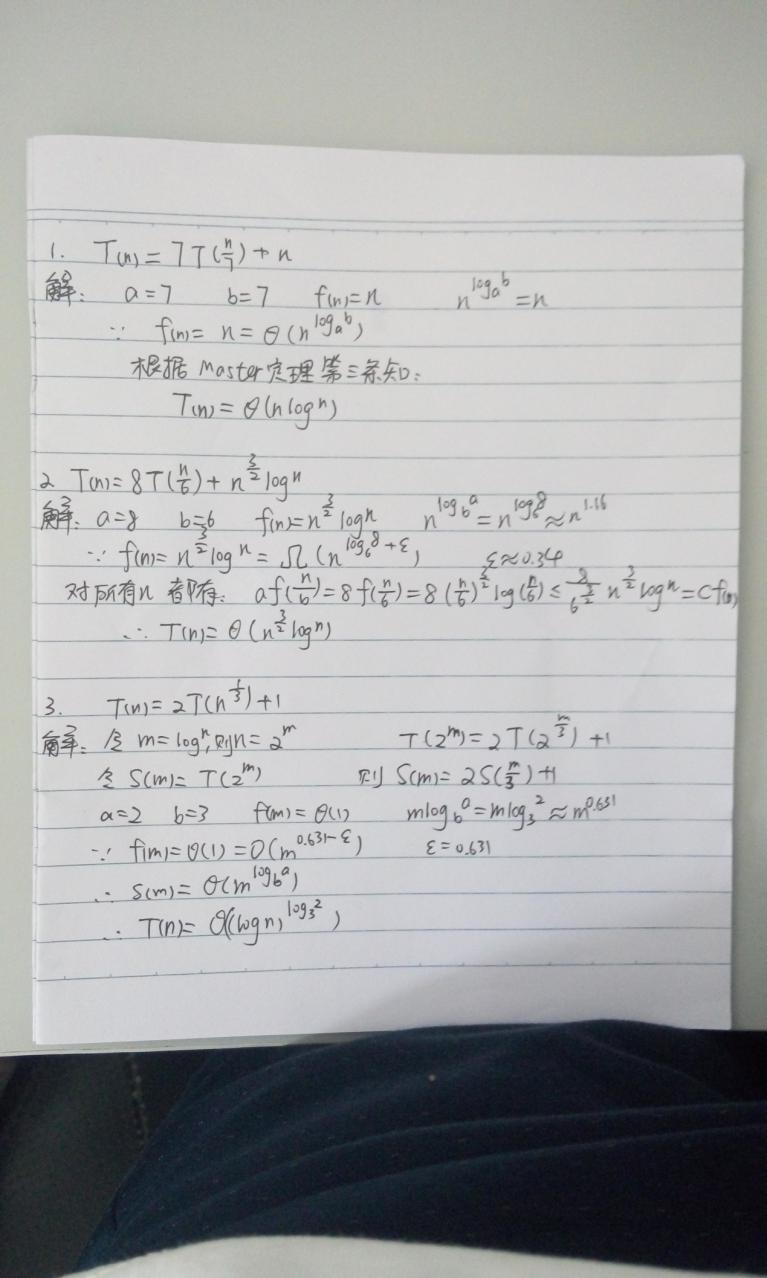 1. T(n) = 7T(n/7) + n
解: a=7 b=7 f(n)=n n^{log_a^b} = n
∵ f(n) = n = θ(n^{log_a^b})
根据 Master定理第三条知:
T(n) = θ(n log^n)
2. T(n) = 8T(n/6) + n^{3/2} log^n
解: a=8 b=6 f(n)=n^{3/2} log^n n^{log_b^a} = n^{log_6^8} ≈ n^{1.16}
∵ f(n) = n^{3/2} log^n = Ω(n^{log_6^8 + ε}) ε≈0.34
对所有n 都有: af(n/b) = 8f(n/6) = 8(n/6)^{3/2} log(n/6) ≤ 8/6^{3/2} n^{3/2} log^n = cf(n)
∴ T(n) = θ(n^{3/2} log^n)
3. T(n) = 2T(n^{1/3}) + 1
解: 令 m=log^n, 则n=2^m T(2^m) = 2T(2^{m/3}) + 1
令 S(m) = T(2^m) 则 S(m) = 2S(m/3) + 1
a=2 b=3 f(m) = θ(1) m^{log_b^a} = m^{log_3^2} ≈ m^{0.631}
∵ f(m) = θ(1) = O(m^{0.631-ε}) ε=0.631
∴ S(m) = θ(m^{log_b^a})
∴ T(n) = θ((log n)^{log_3^2})